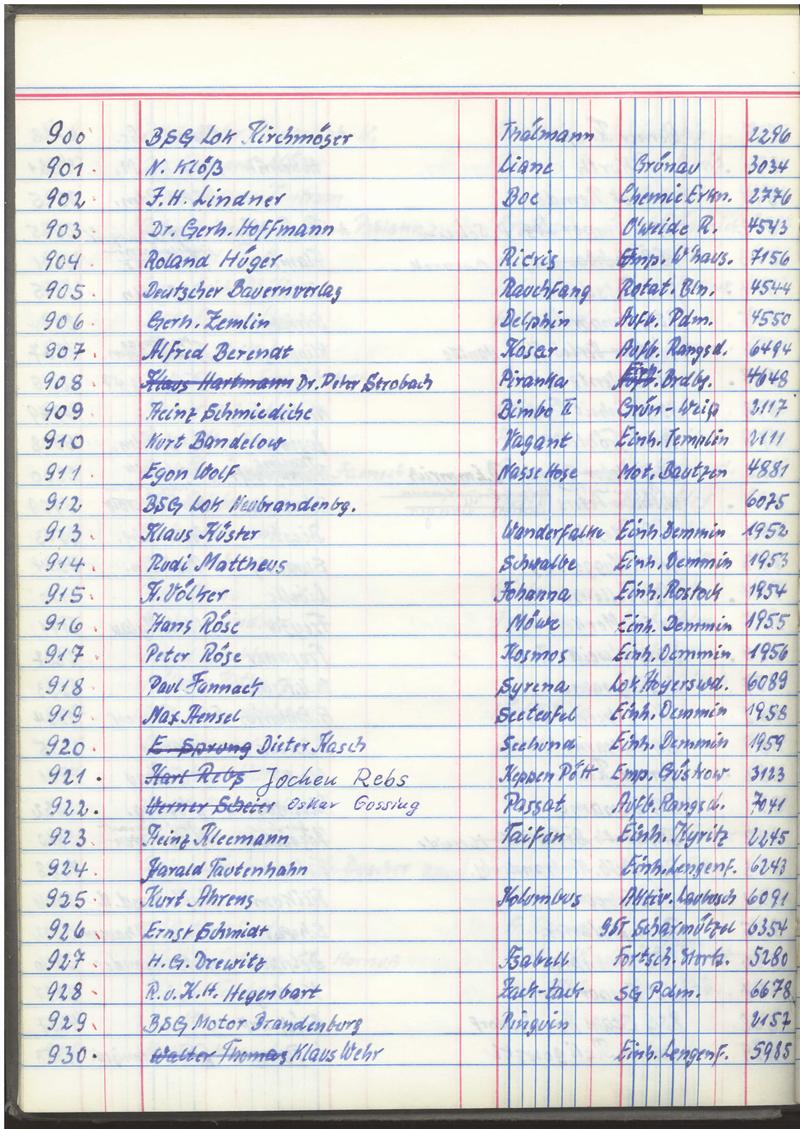 900 BSG Lok Kirchmöser Thälmann 2296
901. N. Klöß Liane Grünau 3034
902. F.H. Lindner Boe Chemie Erkn. 2776
903. Dr. Gerh. Hoffmann O'weide R. 4543
904. Roland Hüger Ricris Emp. W'haus. 7156
905. Deutscher Bauernverlag Rauchfang Rotat. Bln. 4544
906. Gerh. Zemlin Delphin Aufb. Pdm. 4550
907. Alfred Berendt Kaser Aufb. Rangsd. 6494
908. Klaus Hartmann Dr. Peter Strobach Piranha Brdbg. 4648
909. Heinz Schmiediche Bimbo II Grün-Weiß 2117
910. Kurt Bandelow Vagant Einh. Templin 2111
911. Egon Wolf Nasse Hose Mot. Bautzen 4881
912. BSG Lok Neubrandenbg. 6075
913. Klaus Küster Wanderfalke Einh. Demmin 1952
914. Rudi Mattheus Schwalbe Einh. Demmin 1953
915. H. Völker Johanna Einh. Rostock 1954
916. Hans Röse Möwe Einh. Demmin 1955
917. Peter Röse Kosmos Einh. Demmin 1956
918. Paul Fannach Syrena Lok Hoyerswd. 6089
919. Max Hensel Seeteufel Einh. Demmin 1958
920. E. Sprung Dieter Kasch Seehund Einh. Demmin 1959
921. Karl Rebs Jochen Rebs Keppen Pött Emp. Güstrow 3123
922. Werner Scheier Oskar Gossing Passat Aufb. Rangsd. 7041
923. Heinz Kleemann Taifun Einh. Kyritz 2245
924. Harald Tautenhahn Einh. Lengenf. 6243
925. Kurt Ahrens Kolumbus Aktiv. Laubusch 6091
926. Ernst Schmidt Scharmützel 6354
927. H.G. Drewitz Isabell Fortsch. Storb. 5280
928. R.u.K.H. Hegenbart Zack-Zack SG Pdm. 6678
929. BSG Motor Brandenburg Pinguin 2157
930. Walter Thomas Klaus Wehr Einh. Lengenf. 5985